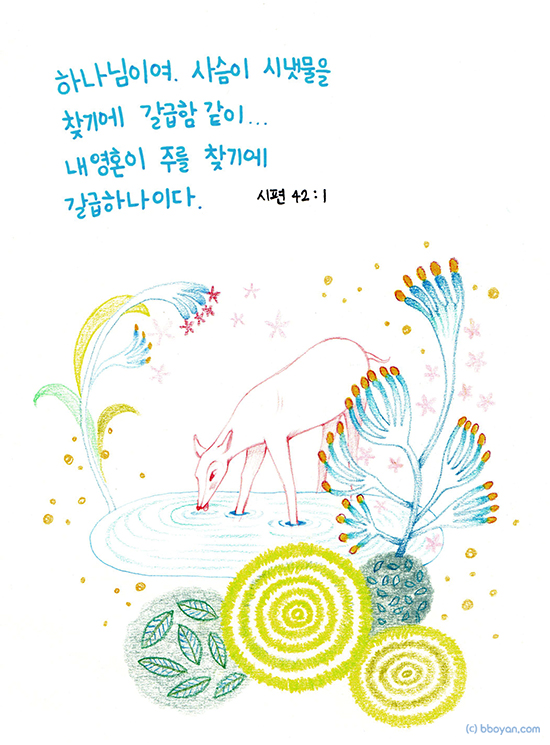 하나님이여. 사슴이 시냇물을
찾기에 갈급함 같이...
내 영혼이 주를 찾기에
갈급하나이다.
시편 42:1
(c) bboyan.com